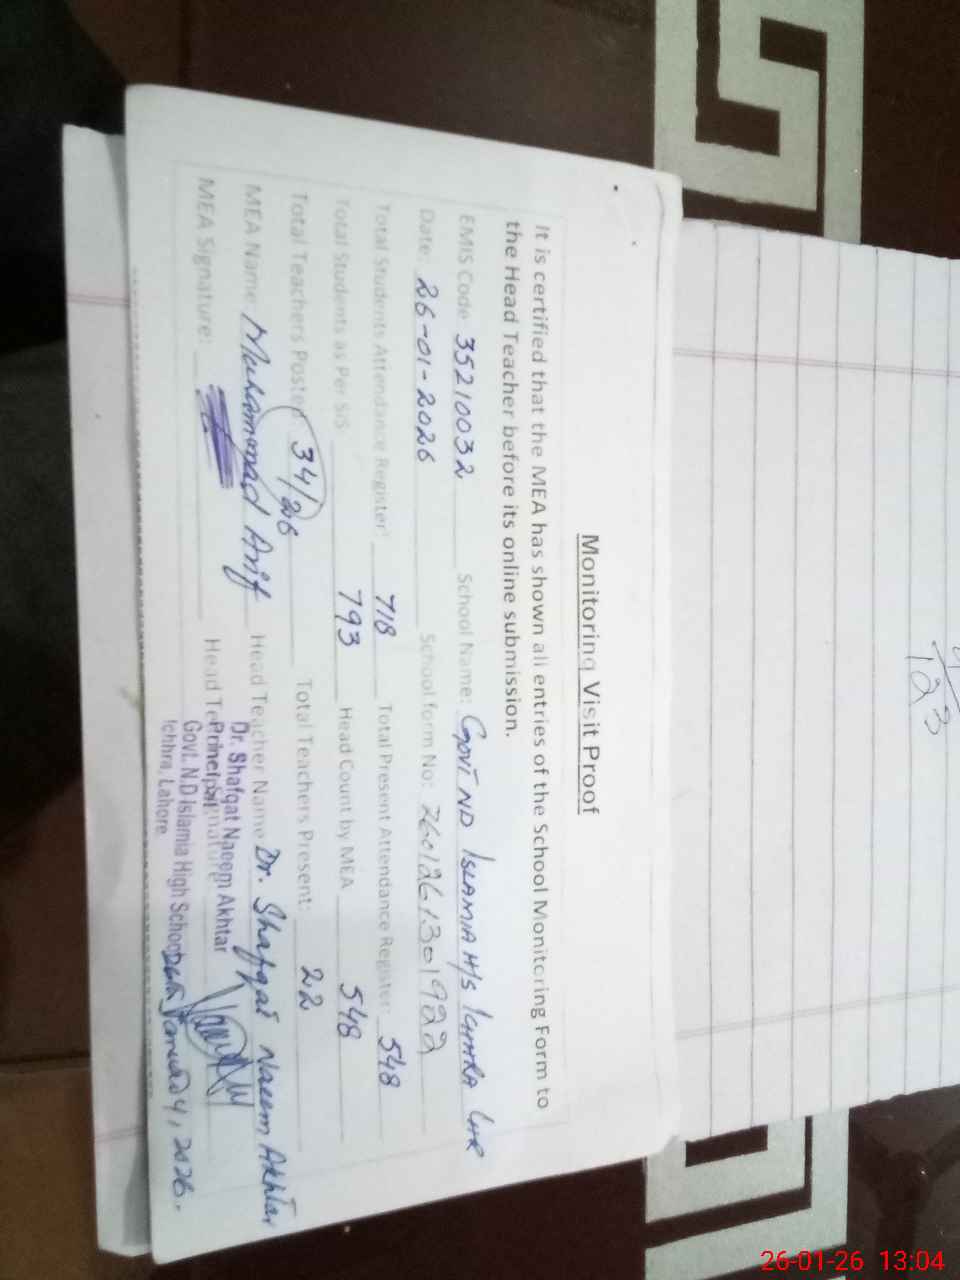 Monitoring Visit Proof
It is certified that the MEA has shown all entries of the School Monitoring Form to
the Head Teacher before its online submission.
EMIS Code 35210032 School Name: GOVT ND ISLAMIA H/S ICHHRA LHR
Date: 26-01-2026 School form No: 2601261301922
Total Students Attendance Register: 718 Total Present Attendance Register: 548
Total Students as Per SIS 793 Head Count by MEA 548
Total Teachers Posted: 34/26 Total Teachers Present: 22
MEA Name Muhammad Arif Head Teacher Name Dr. Shafqat Naeem Akhtar
MEA Signature: Head Teacher Signature
Dr. Shafqat Naeem Akhtar
Principal
Govt. N.D Islamia High School
Ichhra, Lahore
2026.
123
26-01-26 13:04